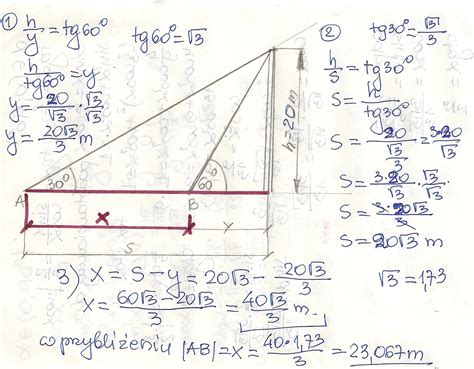 1) h/y = tg60° tg60° = √3
h/tg60° = y
y = 20/√3 · √3/√3
y = 20√3/3 m
2) tg30° = √3/3
h/S = tg30°
S = h/tg30°
S = 20/(√3/3) = 3·20/√3
S = 3·20/√3 · √3/√3
S = 3·20√3/3
S = 20√3 m
h=20m
A 30° B 60°
x y
S
3) X = S - y = 20√3 - 20√3/3 √3 = 1,73
X = (60√3 - 20√3)/3 = 40√3/3 m
w przybliżeniu |AB| = x = 40·1,73/3 = 23,067m